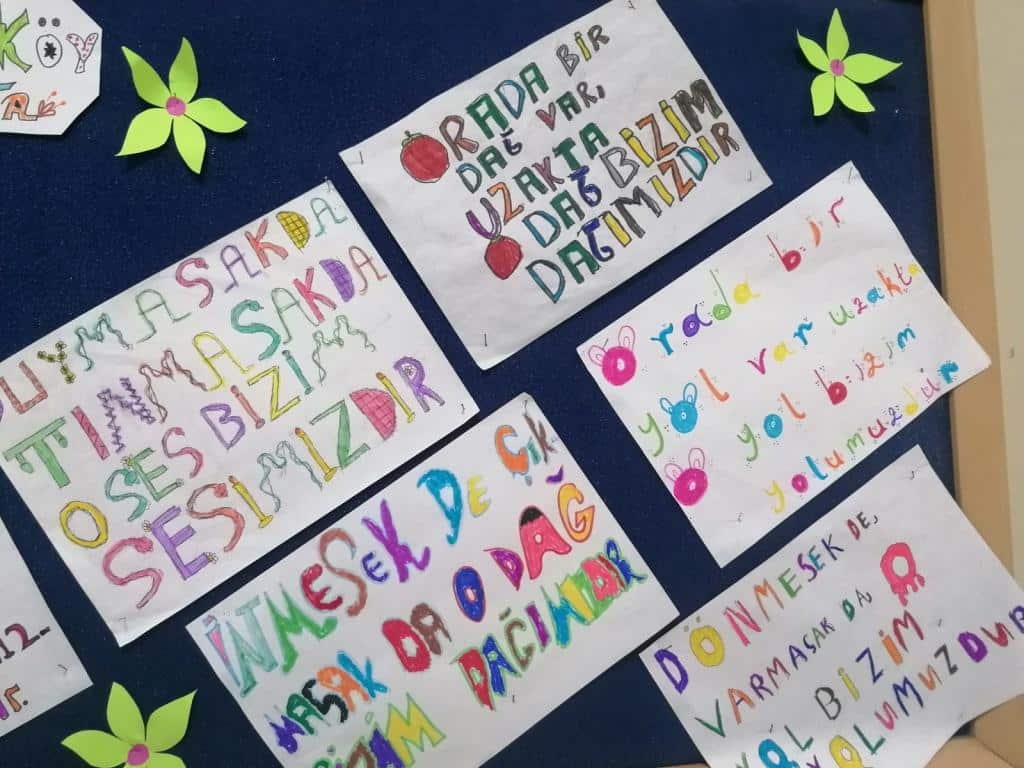 KÖY
ORADA BİR
DAĞ VAR,
UZAKTA
O DAĞ BİZİM
DAĞIMIZDIR
DUYMASAKDA
TINMASAKDA
O SES BİZİM
SESİMİZDİR
Orada bir
yol var uzakta
O yol bizim
yolumuzdur
İNMESEK DE ÇIK
MASAK DA O DAĞ
BİZİM DAĞIMIZDIR
DÖNMESEK DE,
VARMASAK DA O
YOL BİZİM
YOLUMUZDUR